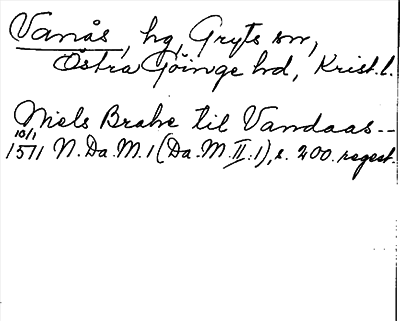 Vanås, hg, Gryts sn,
Östra Göinge hd, Krist.l.
Niels Brahe til Vandaas--
10/1
1511 N.Da.M.1 (Da.M.II.1), s. 200. regest.